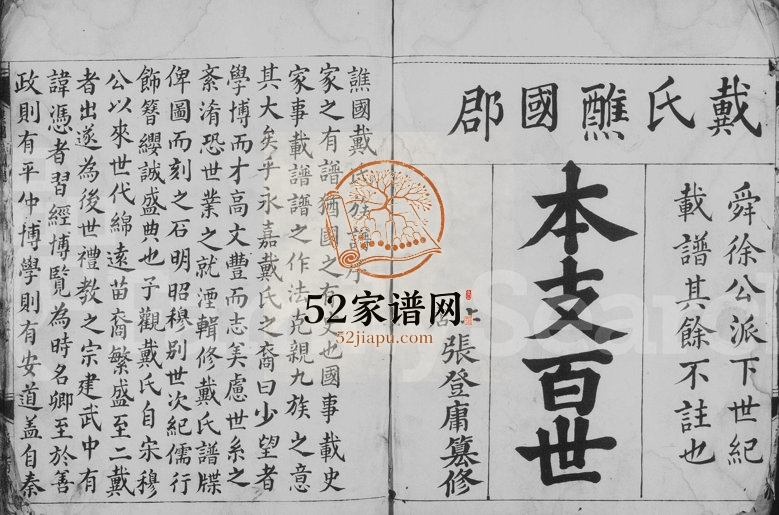 戴氏醮國郡
舜徐公派下世紀
載譜其餘不註也
本支百世
張登庸纂修
譙國戴氏族譜序
家之有譜猶國之有史也國事載史
家事載譜譜之作法克親九族之意
其大矣乎永嘉戴氏之裔曰少望者
學博而才高文豐而志美慮世系之
紊淆恐世業之就湮輯修戴氏譜牒
俾圖而刻之石明昭穆別世次紀儒行
飾簪纓誠盛典也予觀戴氏自宋穆
公以來世代綿遠苗裔繁盛至二戴
者出遂為後世禮教之宗建武中有
諱憑者習經博覽為時名卿至於善
政則有平仲博學則有安道盖自秦
52家谱网
52jiapu.com